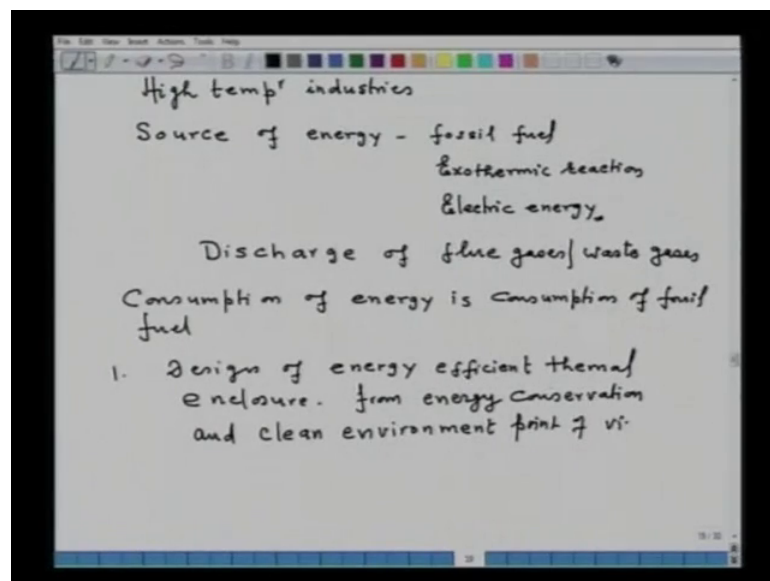 File Edit View Insert Actions Tools Help
High tempr industries
Source of energy - fossil fuel
Exothermic reaction
Electric energy.
Discharge of flue gases/ waste gases
Consumption of energy is consumption of fossil
fuel
1. Design of energy efficient themal
enclosure. from energy conservation
and clean environment point of vi